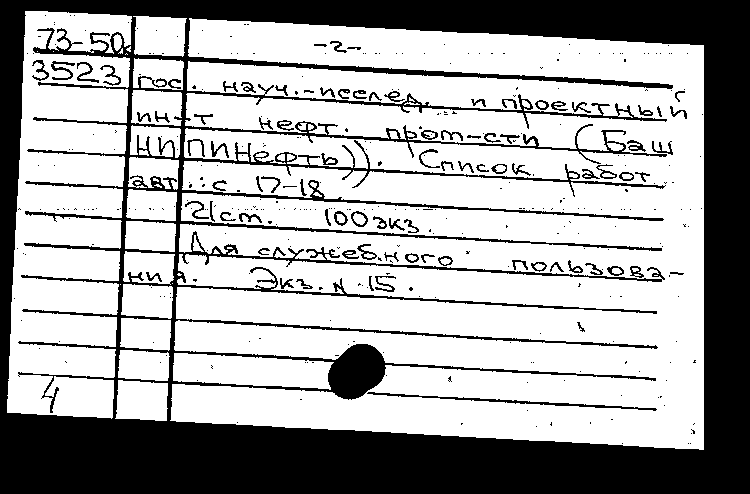 73-50к -2-
3523 гос. науч.-исслед. и проектный
ин-т нефт. пром-сти (Баш
НИПИНефть)). Список работ
авт.: с. 17-18
21 ст. 100 экз.
Для служебного пользова-
ния. Экз. N 15.
4